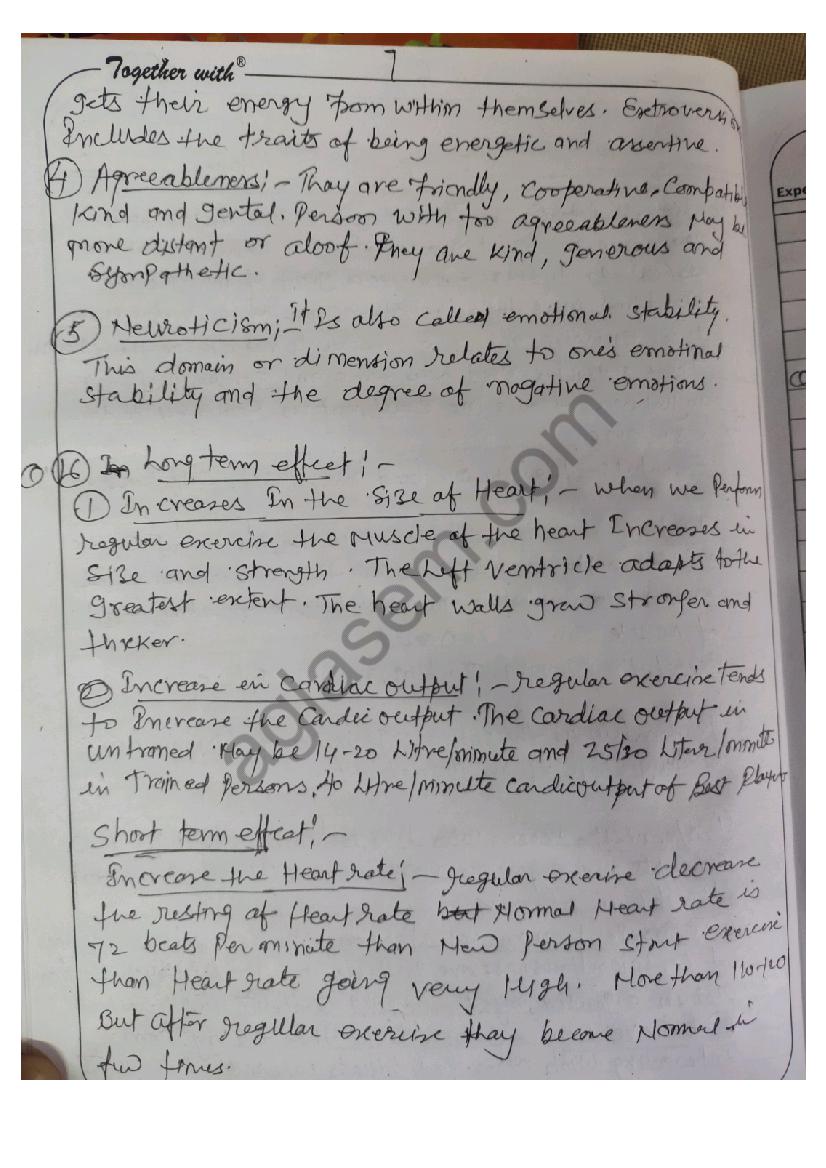 Together with® 7
gets their energy from within themselves. Extroversion
Includes the traits of being energetic and assertive.
④ Agreeableness:- Thay are friendly, cooperative, Compatible
kind and gental. Person with too agreeableness May be
more distant or aloof. They are kind, generous and
Sympathetic.
⑤ Neuroticism:- It is also called emotional stability.
This domain or dimension relates to one's emotinal
stability and the degree of nagative emotions.
16 Long term effect:-
① Increases In the Size of Heart:- when we Perform
regular exercise the Muscle of the heart Increases in
Size and strength. The Left ventricle adapts to the
greatest extent. The heart walls grow stronger and
thicker.
② Increase in Cardiac output:- regular exercise Tends
to Increase the Cardic output. The Cardiac output in
untraned May be 14-20 Litre/minute and 25/30 Liter/minute
in Trained Persons. 40 Litre/minute cardic output of Best Player
Short term effect:-
Increase the Heart rate:- regular exercise decrease
the resting of Heart rate but Normal Heart rate is
72 beats Per minute than New Person start exercise
than Heart rate going very High. More than
But after regular exercise thay become Normal in
few times.
Expe
aglasem.com